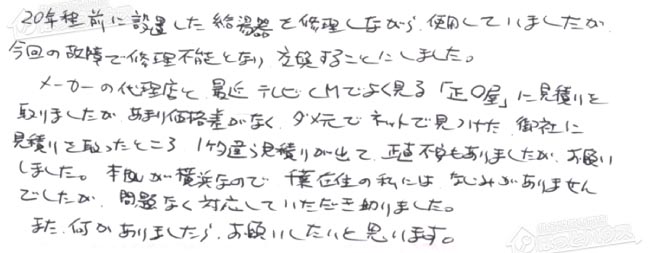 20年程前に設置した給湯器を修理しながら、使用していましたが、
今回の故障で修理不能となり、交換することにしました。
メーカーの代理店と最近テレビCMでよく見る「正〇屋」に見積りを
取りましたが、あまり価格差がなく、ダメ元でネットで見つけた御社に
見積りを取ったところ1ケタ違う見積りが出て、正直不安もありましたが、お願い
しました。本店が横浜なので千葉在住の私には、なじみがありません
でしたが、問題なく対応していただき助かりました。
また、何かありましたら、お願いしたいと思います。